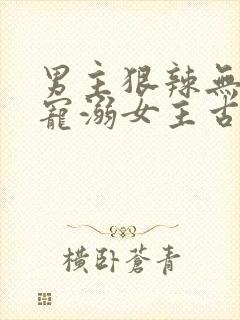 男主狠辣無
寵溺女主古
橫卧蒼青